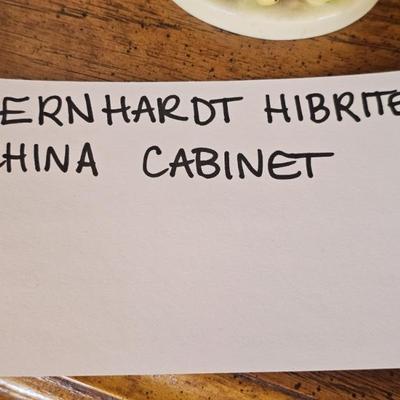 ERNHARDT HIBRITE
HINA CABINET